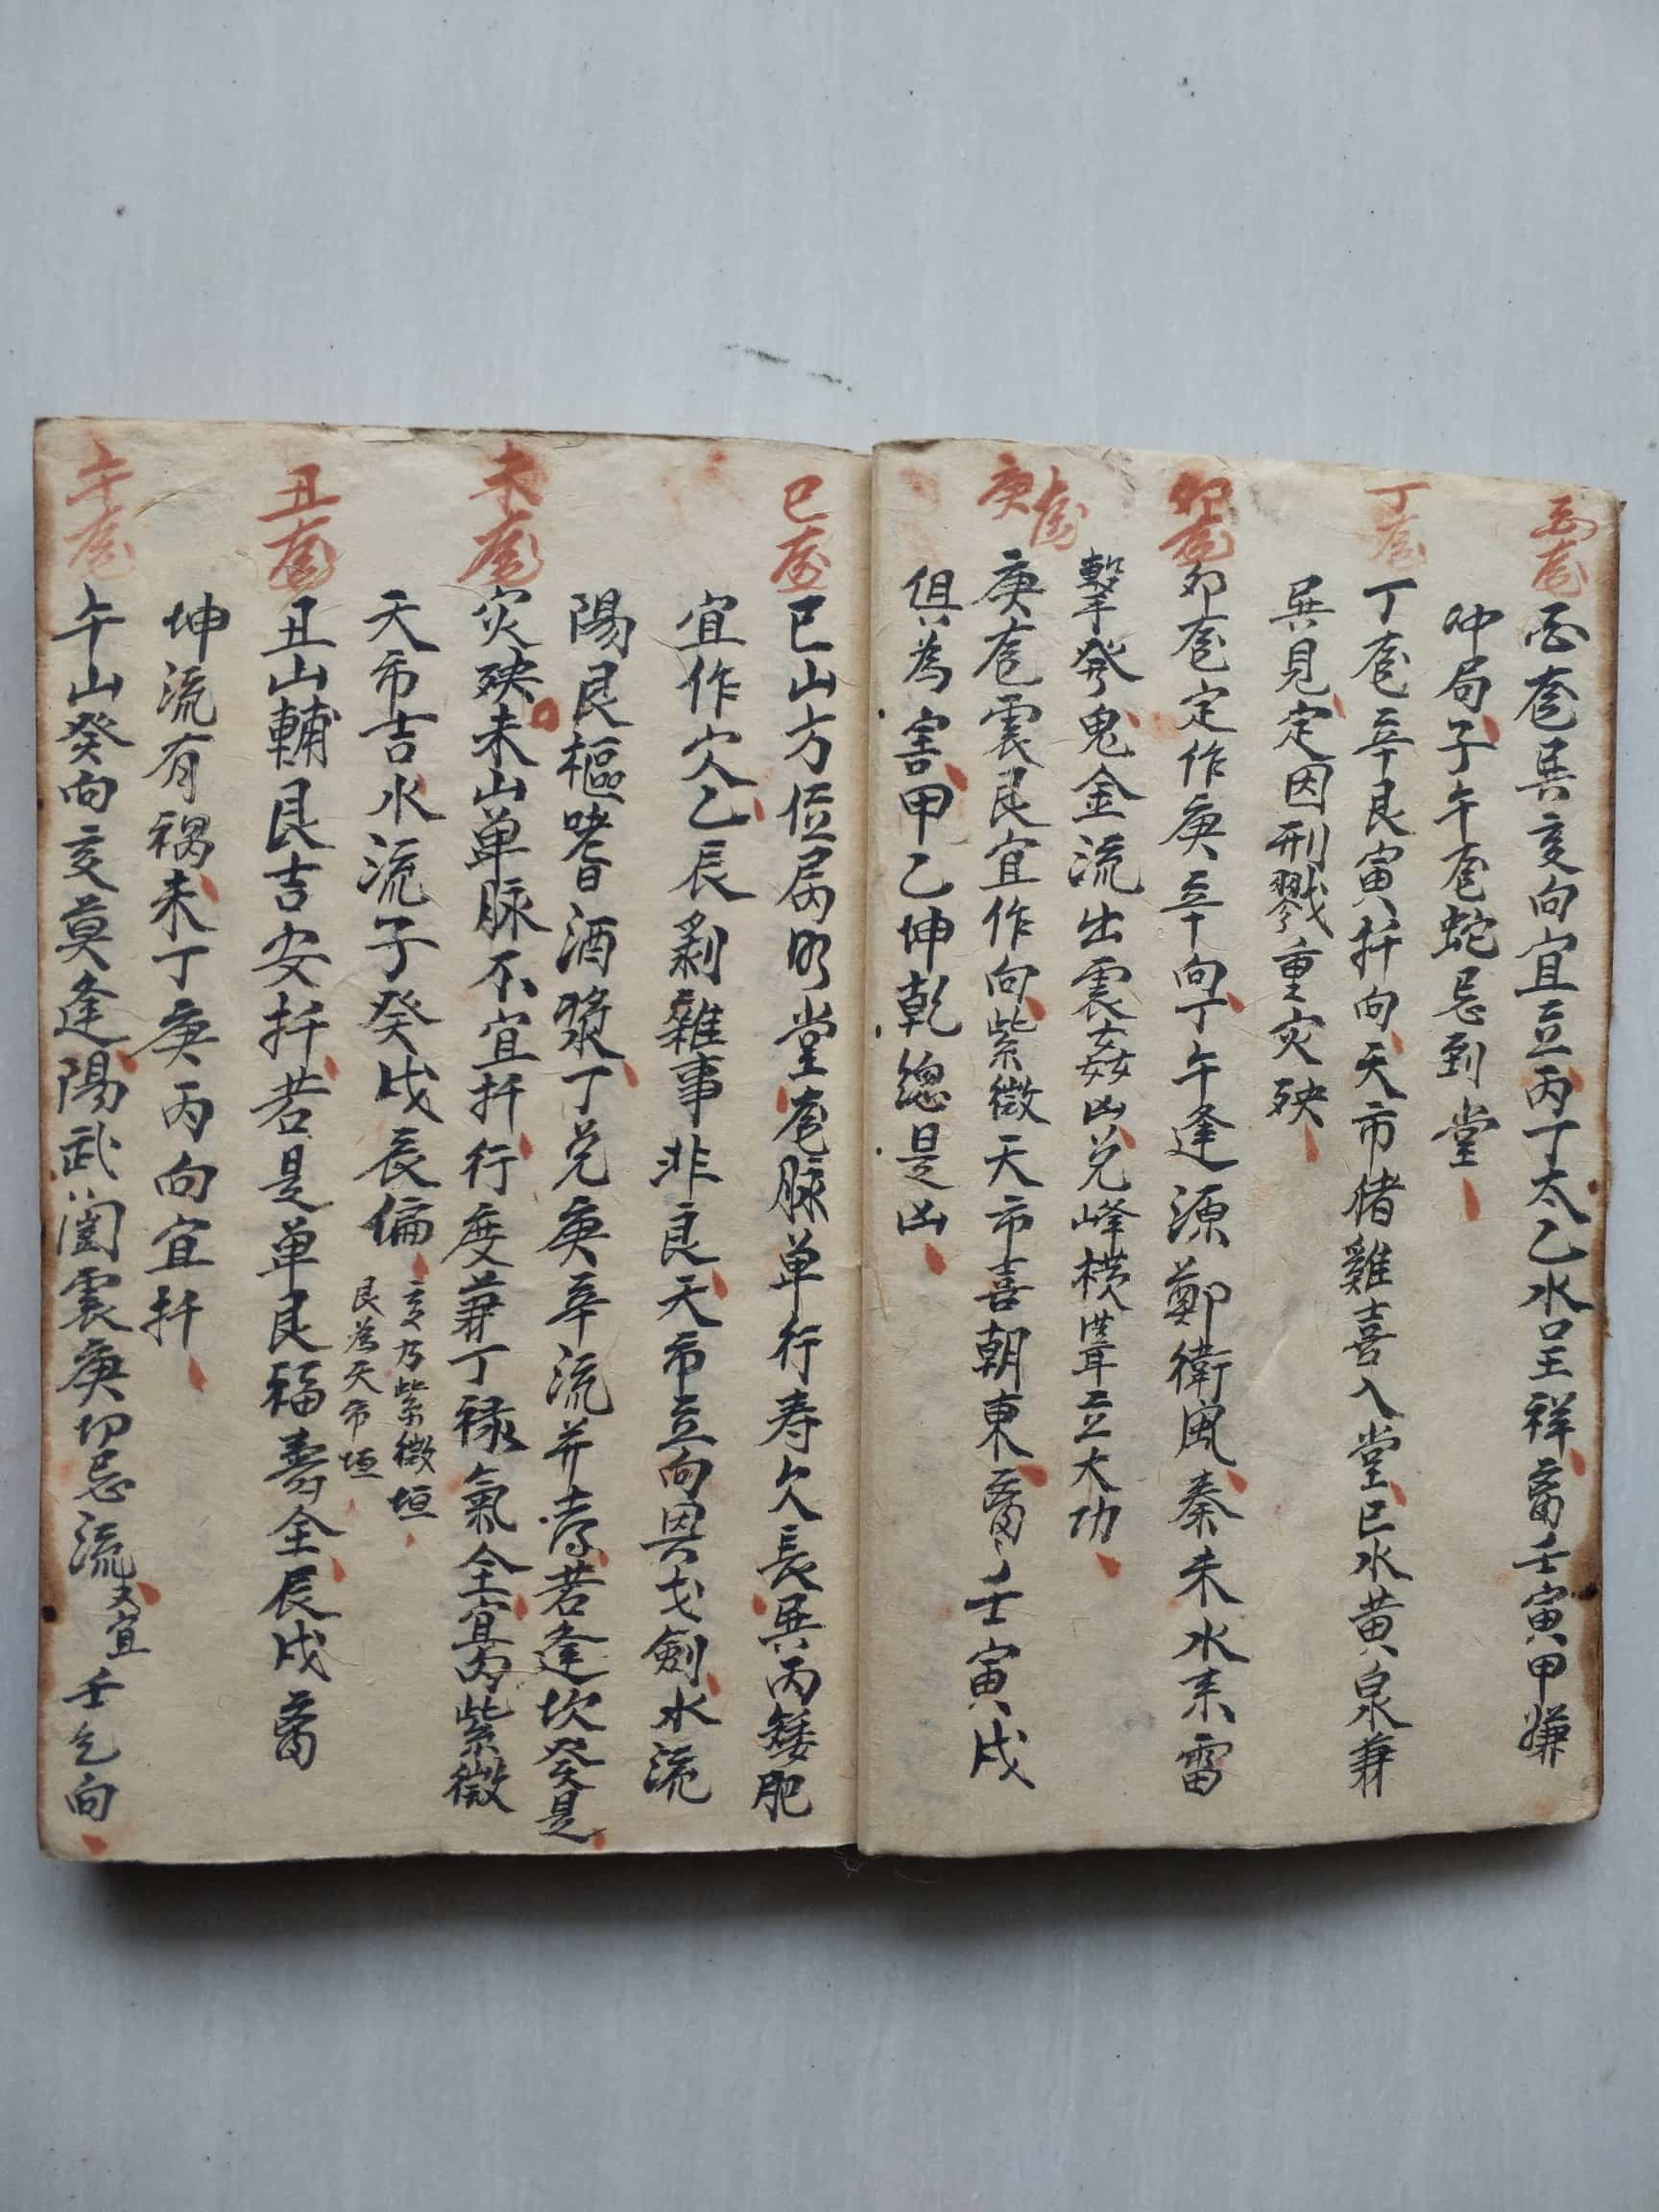 酉龍
酉龍巽亥向宜立丙丁太乙水呈祥畜壬寅甲嫌
冲局子午龍蛇忌到堂
丁龍
丁龍辛艮寅扦向天市猪雞喜入堂巳水黄泉兼
巽見定因刑戮重灾殃
卯龍
卯龍定作庚辛向丁午逢源鄭衛風秦未水来雷
擊發鬼金流出震姦凶兑峰横聳立大功
庚龍
庚龍震艮宜作向紫微天市喜朝東畜壬寅戌
俱為害甲乙坤乾總是凶
巳龍
巳山方位属明堂龍脉单行寿欠長巽丙矮肥
宜作穴乙辰剝雜事非良天市立向與戈劍水流
陽艮樞嗜酒漿丁兑庚辛流并秀若逢坎癸是
未龍
灾殃未山单脉不宜扦行度兼丁禄氣全宜丙紫微
天市吉水流子癸戌辰偏
亥为紫微垣
艮為天市垣
丑龍
丑山輔艮吉安扦若是单艮福壽全辰戌畜
坤流有禍未丁庚丙向宜扦
午龍
午山癸向亥莫逢陽武闺震庚切忌流又宜壬乞向